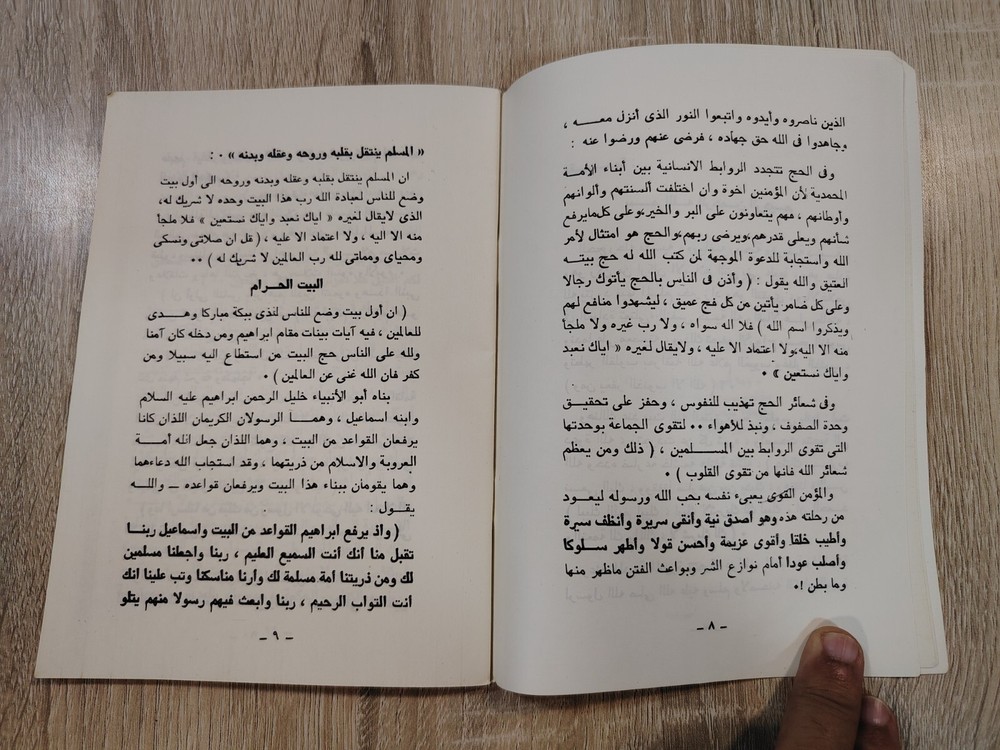 الذين ناصروه وأيدوه واتبعوا النور الذى أنزل معـــه ،
وجاهدوا فى الله حق جهاده ، فرضى عنهم ورضوا عنه :
وفى الحج تتجدد الروابط الانسانية بين أبناء الأمـة
المحمدية لأن المؤمنين اخوة وان اختلفت ألسنتهم وألوانهم
وأوطانهم ، فهم يتعاونون على البر والخير،وعلى كل‌مايرفع
شأنهم ويعلى قدرهم،ويرضى ربهم،والحج هو امتثال لأمر
الله واستجابة للدعوة الموجهة لمن كتب الله له حج بيتـه
العتيق والله يقول : ( وأذن فى الناس بالحج يأتوك رجالا
وعلى كل ضامر يأتين من كل فج عميق ، ليشهدوا منافع لهم
ويذكروا اسم الله ) فلا اله سواه ، ولا رب غيره ولا ملجأ
منه الا اليه،ولا اعتماد الا عليه ، ولايقال لغيره « اياك نعبد
واياك نستعين » ٠
وفى شعائر الحج تهذيب للنفوس ، وحفز على تحقيـق
وحدة الصفوف ، ونبذ للأهواء ٠٠ لتقوى الجماعة بوحدتها
التى تقوى الروابط بين المســـلمين ، ( ذلك ومن يعظم
شعائر الله فانها من تقوى القلوب ) ٠
والمؤمن القوى يعبىء نفسه بحب الله ورسوله ليعـود
من رحلته هذه وهو أصدق نية وأنقى سريرة وأنظف سيرة
وأطيب خلقا وأقوى عزيمة وأحسن قولا وأطهر سلـوكا
وأصلب عودا أمام نوازع الشر وبواعث الفتن ماظهر منها
وما بطن !٠
ـ ٨ ـ
« المسلم ينتقل بقلبه وروحه وعقله وبدنه » ٠ :
ان المسلم ينتقل بقلبه وعقله وبدنه وروحه الى أول بيت
وضع للناس لعبادة الله رب هذا البيت وحده لا شريك له،
الذى لايقال لغيره « اياك نعبد واياك نستعين » فلا ملجأ
منه الا اليه ، ولا اعتماد الا عليه ، ( قل ان صلاتى ونسكى
ومحياى ومماتى لله رب العالمين لا شريك له ) ٠٠
البيت الحـرام
( ان أول بيت وضع للناس للذى ببكة مباركا وهـدى
للعالمين ، فيه آيات بينات مقام ابراهيم ومن دخله كان آمنا
ولله على الناس حج البيت من استطاع اليه سبيلا ومن
كفر فان الله غنى عن العالمين ) ٠
بناه أبو الأنبياء خليل الرحمن ابراهيم عليه السلام
وابنه اسماعيل ، وهمـا الرسولان الكريمان اللذان كانا
يرفعان القواعد من البيت ، وهما اللذان جعل الله أمــة
العروبة والاسلام من ذريتهما ، وقد استجاب الله دعاءهما
وهما يقومان ببناء هذا البيت ويرفعان قواعده ــ واللـه
يقـول :
( واذ يرفع ابراهيم القواعد من البيت واسماعيل ربنـا
تقبل منا أنك أنت السميع العليم ، ربنا واجعلنا مسلمين
لك ومن ذريتنا أمة مسلمة لك وأرنا مناسكنا وتب علينا انك
أنت التواب الرحيم ، ربنا وابعث فيهم رسولا منهم يتلو
ـ ٩ ـ